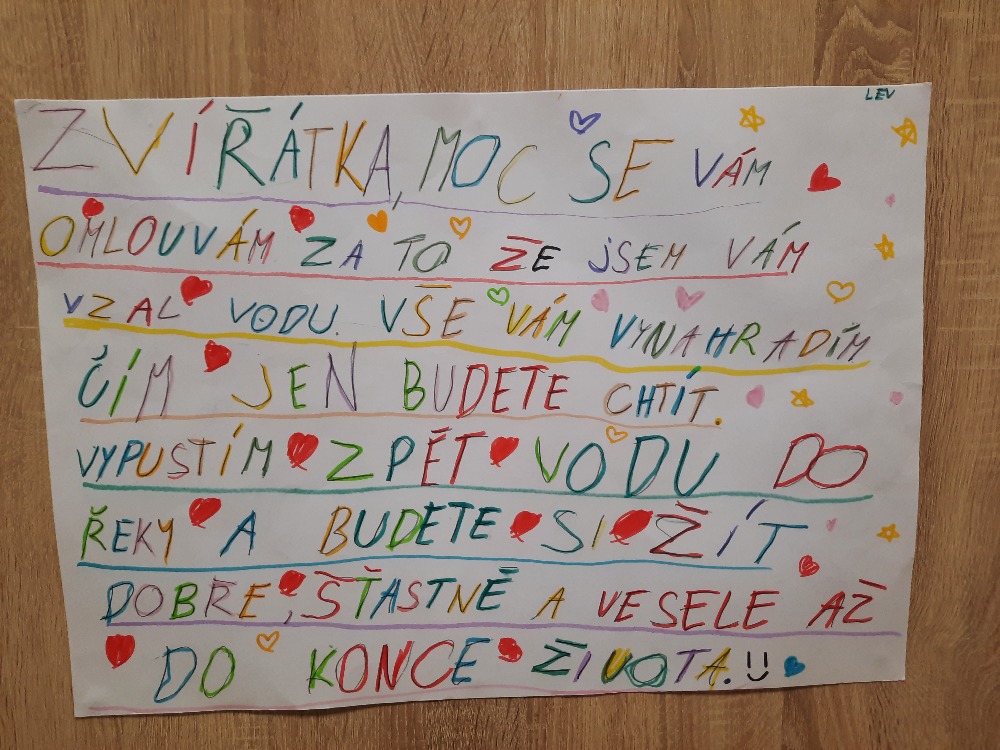 LEV
ZVÍŘÁTKA, MOC SE VÁM
OMLOUVÁM ZA TO ŽE JSEM VÁM
VZAL VODU. VŠE VÁM VYNAHRADÍM
ČÍM JEN BUDETE CHTÍT.
VYPUSTÍM ZPĚT VODU DO
ŘEKY A BUDETE SI ŽÍT
DOBŘE, ŠŤASTNĚ A VESELE AŽ
DO KONCE ŽIVOTA.!!